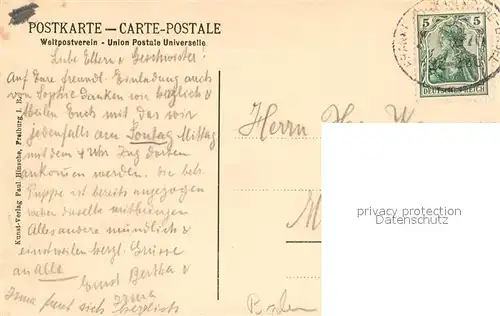 POSTKARTE — CARTE-POSTALE
Weltpostverein - Union Postale Universelle
5 5
DEUTSCHES REICH
Liebe Eltern & Geschwister!
Auf Eure freundl. Einladung auch
von Sophie danken wir herzlich &
teilen Euch mit das wir
jedenfalls am Sontag Mittag
mit dem 4 Uhr Zug dorten
ankomen werden. die
Puppe ist bereits angezogen
werden dieselbe mitbringen
Alles andere mündlich &
einstweilen herzl. Grüsse
an Alle
Ernst Bertha &
Irma
Irma freut sich herzlich
Herrn
Baden
Kunst-Verlag Paul Hinsche, Freiburg i. B.
privacy protection
watermark